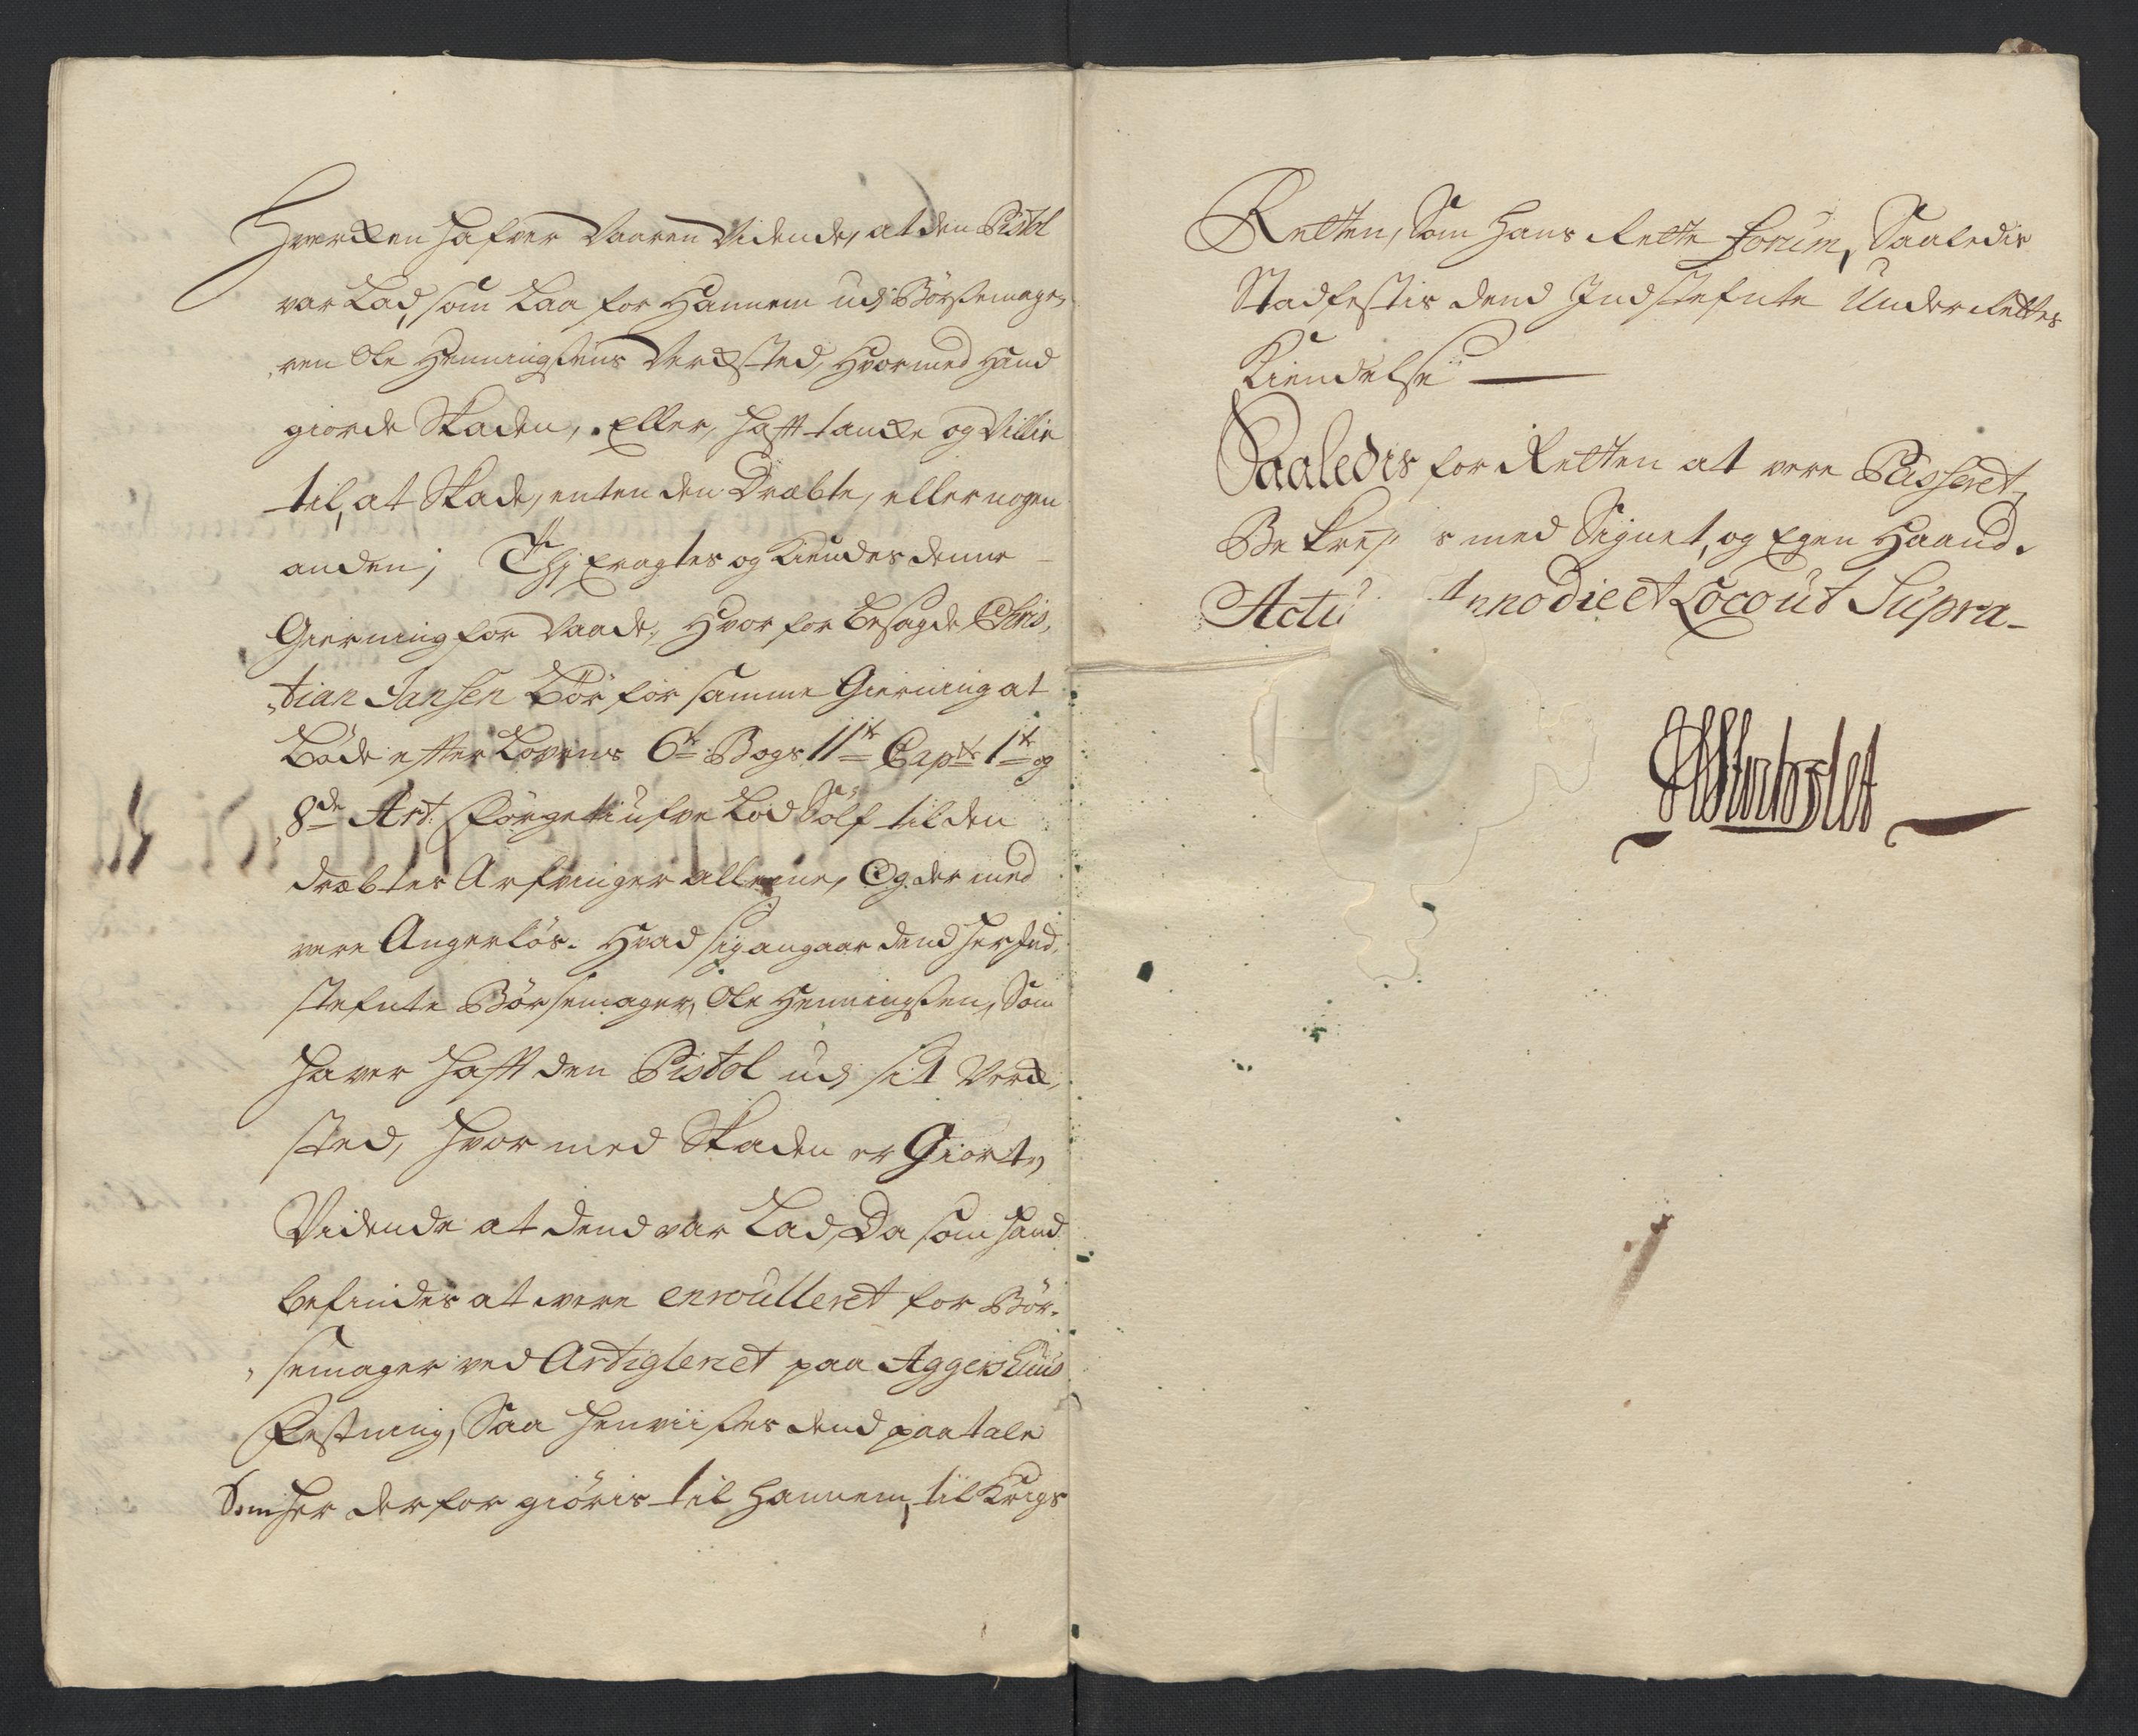 Hwercken hafver Vaaren Vidende, at den Pistol
var Lad, som Laa for Hannem udj Börssemage,
,ren Ole Henningssens Vercksted, hvormed hand
giorde Skaden, Eller, hafft tancke og Villie
til, at Skade, enten den Dræbte, eller nogen
anden; Thj Eragtes og Kiendes denne
Gierning for Vaade, Hvor for besagde Chris,
,tian Jansen Bör for samme Gierning at
Böde efter Lovens 6te Bogs 11te Capts 1te og
8de Art: Förgetiufve Lod Sölf til den
dræbtes Arfvinger alleene, Og der med
vere Angerlös. Hvad sig angaar dend her Ind,
stefnte Börsemager, Ole Henningssen, Som
haver hafft den Pistol udj sit Verck,
sted, hvor med Skaden er Giort,
Vidende at dend var Lad, Da som hand
befindes at vere enroulleret for Bör,
,semager ved Artigleriet paa Aggershuus
Festning, Saa henviises dend paatale
Som her derfor giöris til Hannem, til Krigs
Retten, Som Hans Rette forum, Saaledis
Stadfestis dend Indstefnte Under Rettes
Kiendelse
Saaledis for Retten at vere Passeret,
Bekref s med Signet, og Egen Haand.
Actu Anno die et Loco ut Supra